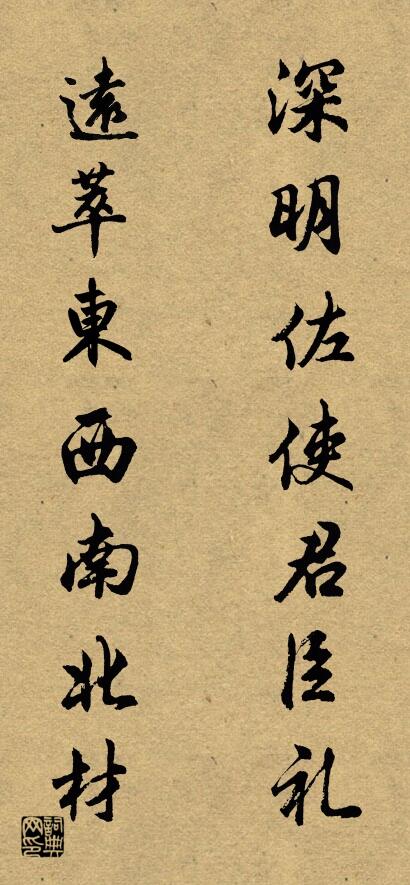 深明佐使君臣礼
遠萃東西南北材
詞典网印